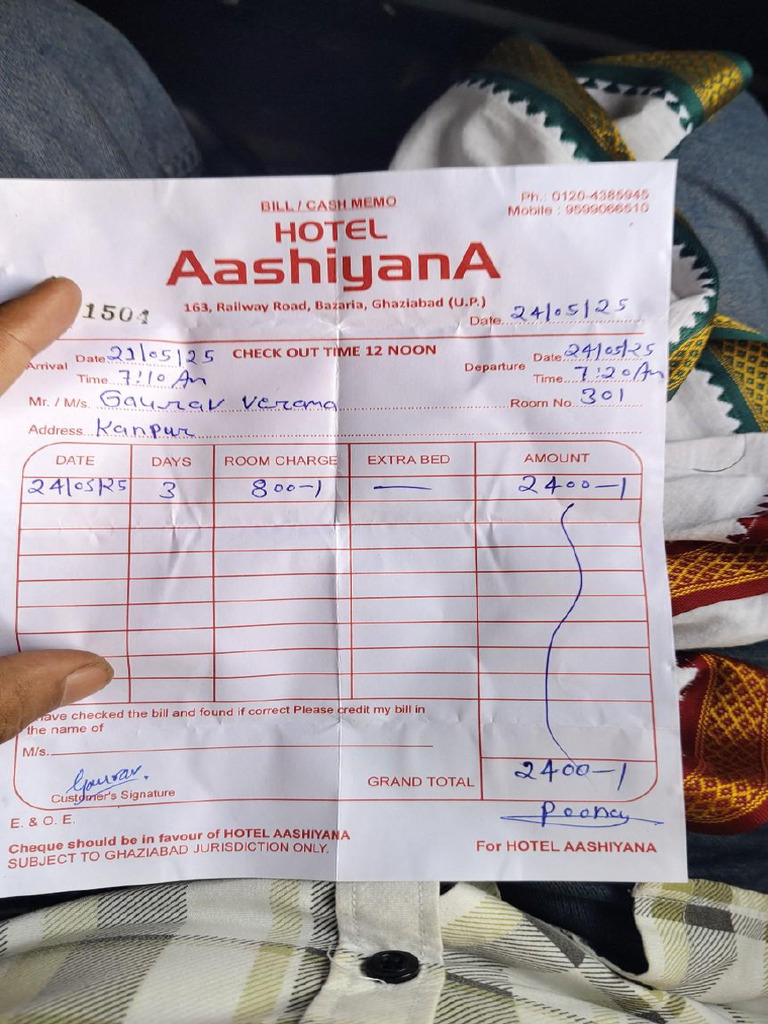 BILL / CASH MEMO
Ph.: 0120-4385945
Mobile : 9599066510
HOTEL
AashiyanA
1504
163, Railway Road, Bazaria, Ghaziabad (U.P.)
Date 24/05/25
Arrival Date 21/05/25 CHECK OUT TIME 12 NOON Departure Date 24/05/25
Time 7:10 Am Time 7:20 Am
Mr. / M/s. Gaurav Verama Room No 301
Address Kanpur
DATE DAYS ROOM CHARGE EXTRA BED AMOUNT
24/05/25 3 800-/ — 2400-/
have checked the bill and found if correct Please credit my bill in
the name of
M/s.
2400-/
GRAND TOTAL
Gaurav.
Customer's Signature
E. & O. E.
Cheque should be in favour of HOTEL AASHIYANA
For HOTEL AASHIYANA
SUBJECT TO GHAZIABAD JURISDICTION ONLY.